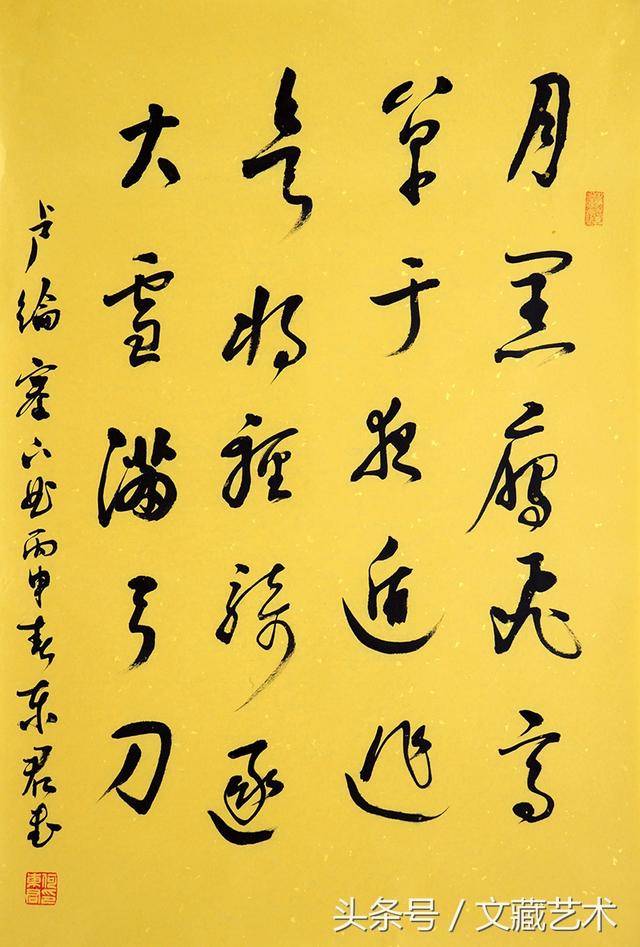 月黑雁飞高
单于夜遁逃
欲将轻骑逐
大雪满弓刀
卢纶塞下曲丙申春东君书
头条号 / 文藏艺术